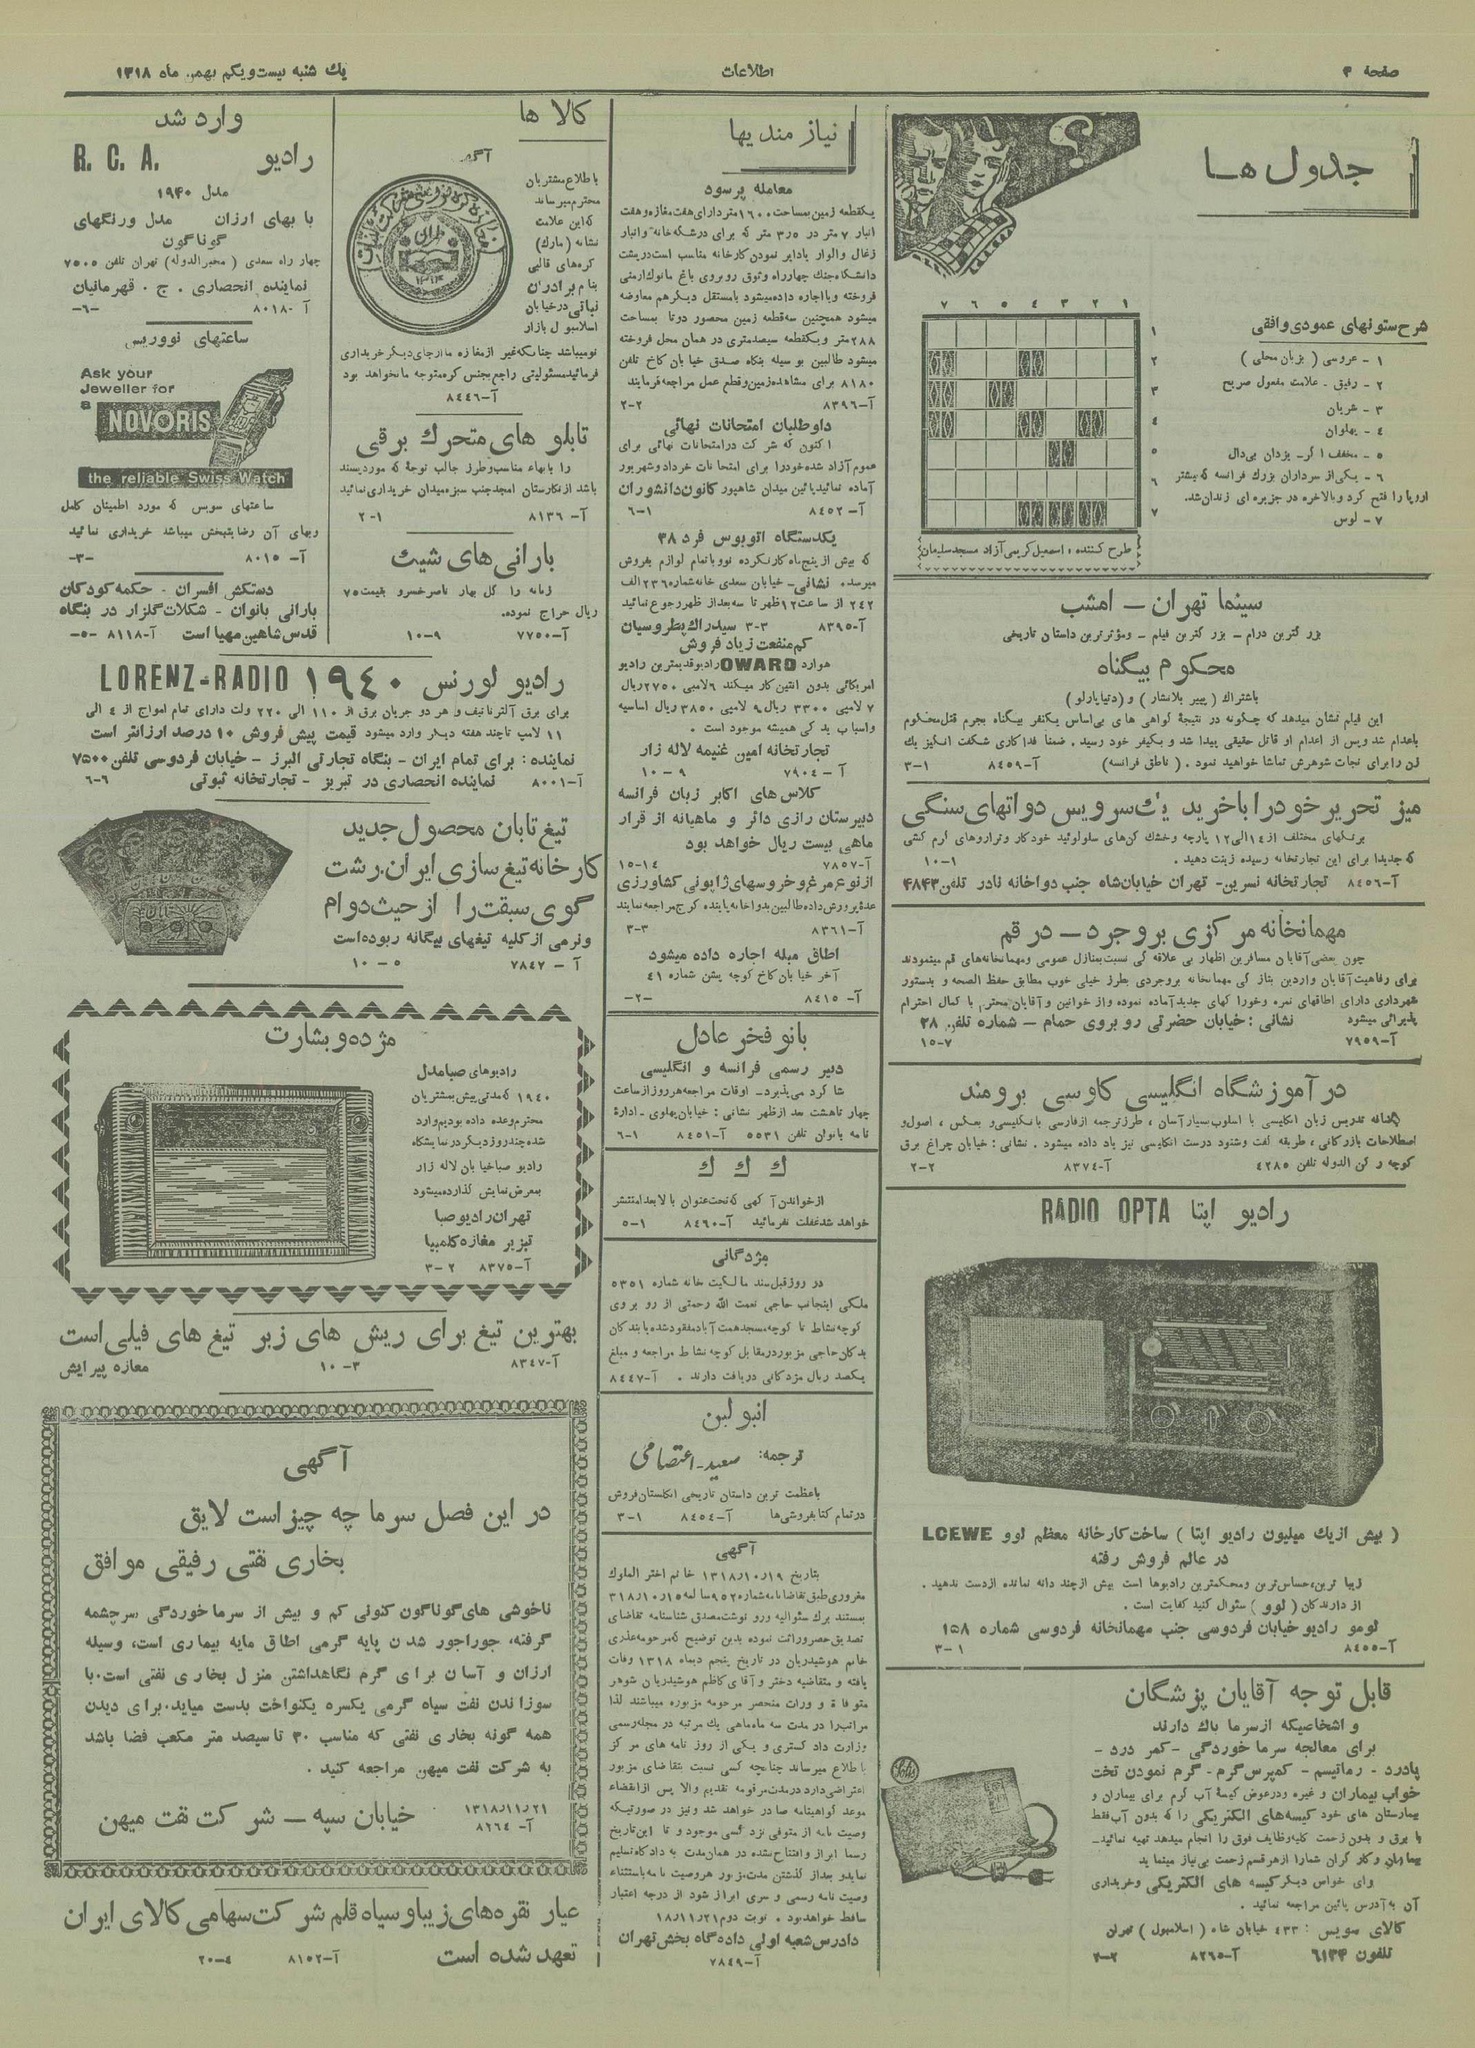 صفحه ۴
اطلاعات
یک شنبه بیست و یکم بهمن ماه ۱۳۱۸
جدول ها
۱ ۲ ۳ ۴ ۵ ۶ ۷
۱
۲
۳
۴
۵
۶
۷
شرح ستونهای عمودی و افقی
۱ - عروسی ( بزبان محلی )
۲ - رفیق - علامت مفعول صریح
۳ - شریان
۴ - پهلوان
۵ - مخفف اگر - یزدان بی‌دال
۶ - یکی از سرداران بزرگ فرانسه که بیشتر
اروپا را فتح کرد و بالاخره در جزیره ای زندان شد.
۷ - لوس
طرح کننده : اسمعیل کریمی آزاد مسجد سلیمان
سینما تهران — امشب
بزرگترین درام - بزرگترین فیلم - و مؤثرترین داستان تاریخی
محکوم بیگناه
باشتراک ( پییر بلانشار ) و ( دنیا پارلو )
این فیلم نشان میدهد که چگونه در نتیجهٔ گواهی های بی‌اساس یکنفر بیگناه بجرم قتل محکوم
باعدام شد و پس از اعدام او قاتل حقیقی پیدا شد و بکیفر خود رسید . ضمناً فداکاری شگفت انگیز یک
زن را برای نجات شوهرش تماشا خواهید نمود . ( ناطق فرانسه ) آ-۸۴۵۹ ۱-۳
میز تحریر خود را با خرید یک سرویس دواتهای سنگی
برنگهای مختلف از ۴ الی ۱۲ پارچه و خشک کن‌های سلولوئید خودکار و ترازوهای گرم کشی
که جدیدا برای این تجارتخانه رسیده زینت دهید . ۱-۱۰
آ-۸۴۵۶ تجارتخانه نسرین- تهران خیابان شاه جنب دواخانه نادر تلفن ۴۸۴۳
مهمانخانه مرکزی بروجرد — در قم
چون بعضی آقایان مسافرین اظهار بی علاقه گی نسبت بمنازل عمومی و مهمانخانه‌های قم مینمودند
برای رفاهیت آقایان واردین بتازگی مهمانخانه بروجردی بطرز خیلی خوب مطابق حفظ الصحه و بدستور
شهرداری دارای اطاقهای نمره و خوراکهای جدید آماده نموده و از خواتین و آقایان محترم با کمال احترام
پذیرائی میشود نشانی : خیابان حضرتی رو بروی حمام — شماره تلفن ۳۸
آ-۷۹۵۹ ۷-۱۵
در آموزشگاه انگلیسی کاوسی برومند
تدریس زبان انگلیسی با اسلوب بسیار آسان ، طرز ترجمه از فارسی بانگلیسی و بعکس ، اصول و
اصطلاحات بازرگانی ، طریقه گفت وشنود درست انگلیسی نیز یاد داده میشود . نشانی : خیابان چراغ برق
کوچه رکن الدوله تلفن ۴۲۸۵ آ-۸۳۷۴ ۲-۲
رادیو اپتا RADIO OPTA
( بیش از یک میلیون رادیو اپتا ) ساخت کارخانه معظم لوو LOEWE
در عالم فروش رفته
زیبا ترین، حساس ترین و محکمترین رادیوها است بیش از چند دانه نمانده از دست ندهید .
از دارندگان ( لوو ) سئوال کنید کفایت است .
لومو رادیو خیابان فردوسی جنب مهمانخانه فردوسی شماره ۱۵۸
آ-۸۴۵۵ ۱-۳
قابل توجه آقایان پزشگان
و اشخاصیکه از سرما باک دارند
برای معالجه سرما خوردگی - کمر درد -
پادرد - رماتیسم - کمپرس گرم - گرم نمودن تخت
خواب بیماران و غیره و در عوض کیسهٔ آب گرم برای بیماران و
بیمارستان های خود کیسه‌های الکتریکی را که بدون آب فقط
با برق و بدون زحمت کلیه وظایف فوق را انجام میدهد تهیه نمائید-
بیماران و کارگران شما را از هر قسم زحمت بی‌نیاز مینماید
برای خواص دیگر کیسه های الکتریکی و خریداری
آن به آدرس پائین مراجعه نمائید .
کالای سویس : ۴۳۳ خیابان شاه ( اسلامبول ) تهران
تلفون ۶۱۳۴ آ-۸۲۶۵ ۲-۲
Solis
نیازمندیها
معامله پرسود
یکقطعه زمین بمساحت ۱۶۰۰ متر دارای هفت مغازه و هفت
انبار ۷ متر در ۳٫۵ متر که برای درشکه خانه و انبار
زغال و الوار یا دایر نمودن کارخانه مناسب است در پشت
دانشگاه جنگ چهارراه وثوق روبروی باغ مانوک ارمنی
فروخته و یا اجاره داده میشود با مستقل دیگر هم معاوضه
میشود همچنین سه قطعه زمین محصور دوتا بمساحت
۲۸۸ متر و یکقطعه سیصد متری در همان محل فروخته
میشود طالبین بوسیله بنگاه صدق خیابان کاخ تلفن
۸۱۸۰ برای مشاهده زمین و قطع عمل مراجعه فرمایند
آ-۸۳۹۶ ۲-۲
داوطلبان امتحانات نهائی
اکنون که شرکت در امتحانات نهائی برای
عموم آزاد شده خود را برای امتحانات خرداد و شهریور
آماده نمائید پائین میدان شاهپور کانون دانشوران
آ-۸۴۵۲ ۱-۶
یکدستگاه اتوبوس فرد ۳۸
که بیش از پنجماه کار نکرده نو و با تمام لوازم بفروش
میرسد. نشانی - خیابان سعدی خانه شماره ۲۳۶ الف
۲۴۲ از ساعت ۱۲ ظهر تا سه بعد از ظهر رجوع نمائید
آ-۸۳۹۵ ۳-۳ سیدراک پطروسیان
کم منفعت زیاد فروش
هوارد OWARD رادیو قدیمترین رادیو
امریکائی بدون انتین کار میکند ۶ لامپی ۲۷۵۰ ریال
۷ لامپی ۳۳۰۰ ریال ۹ لامپی ۳۸۵۰ ریال اساسیه
و اسباب یدکی همیشه موجود است .
تجارتخانه امین غنیمه لاله زار
آ - ۷۹۰۴ ۹ - ۱۰
کلاس های اکابر زبان فرانسه
دبیرستان رازی دائر و ماهیانه از قرار
ماهی بیست ریال خواهد بود
آ-۷۸۵۷ ۱۴-۱۵
از نوع مرغ و خروسهای ژاپونی کشاورزی
عدهٔ پرورش داده طالبین بدواخانه پاینده کرج مراجعه نمایند
آ-۸۳۶۱ ۳-۳
اطاق مبله اجاره داده میشود
آخر خیابان کاخ کوچه پشن شماره ۴۱
آ- ۸۴۱۵ -۲-
بانو فخر عادل
دبیر رسمی فرانسه و انگلیسی
شاگرد می‌پذیرد- اوقات مراجعه هر روز از ساعت
چهار تا هشت بعد از ظهر نشانی : خیابان پهلوی - ادارهٔ
نامه بانوان تلفن ۵۵۳۱ آ-۸۴۵۱ ۱-۶
ک ک ک
از خواندن آگهی که تحت عنوان بالا بعداً منتشر
خواهد شد غفلت نفرمائید آ-۸۴۶۰ ۱-۵
مژدگانی
در روز قبل سند مالکیت خانه شماره ۵۳۵۱
ملکی اینجانب حاجی نعمت الله رحمتی از رو بروی
کوچه نشاط تا کوچه مسجد همت آباد مفقود شده یابندگان
بدکان حاجی مزبور در مقابل کوچه نشاط مراجعه و مبلغ
یکصد ریال مژدگانی دریافت دارند . آ-۸۴۴۷
انبولین
ترجمه: سعید - اعتصامی
باعظمت ترین داستان تاریخی انگلستان فروش
در تمام کتابفروشی‌ها آ-۸۴۵۴ ۱-۳
آگهی
بتاریخ ۱۹ر۱۰ر۱۳۱۸ خانم اختر الملوک
مغروری طبق تقاضانامه شماره ۹۵۲ ساله ۱۵ر۱۰ر۳۱۸
بمستند برگ سئوالیه و رو نوشت مصدق شناسنامه تقاضای
تصدیق حصر وراثت نموده بدین توضیح که مرحومه عذری
خانم هوشیدریان در تاریخ پنجم دیماه ۱۳۱۸ وفات
یافته و متقاضیه دختر و آقای کاظم هوشیدریان شوهر
متوفاة و وراث منحصر مرحومه مزبوره میباشند لذا
مراتب را در مدت سه ماه ماهی یک مرتبه در مجله رسمی
وزارت دادگستری و یکی از روز نامه های مرکز
باطلاع میرساند چنانچه کسی نسبت بتقاضای مزبور
اعتراضی دارد در مدت مرقومه تقدیم والا پس از انقضاء
موعد گواهینامه صادر خواهد شد و نیز در صورتیکه
وصیت نامه از متوفی نزد کسی موجود و تا این تاریخ
رسما ابراز و افتتاح نشده در همان مدت به دادگاه تسلیم
نمایدو بعد از گذشتن مدت مزبور هر وصیت نامه باستثناء
وصیت نامه رسمی و سری ابراز شود از درجه اعتبار
ساقط خواهد بود . نوبت دوم ۲۱ر۱۱ر۱۸
دادرس شعبه اولی دادگاه بخش تهران
آ-۷۸۴۹
کالا ها
آگهی
باطلاع مشتریان
محترم میرساند
که این علامت
نشانه (مارک)
کره‌های قالبی
بنام برادران
نباتی در خیابان
اسلامبول بازار
طهران
۱۳۱۳
نو میباشد چنانکه غیر از مغازه ما از جای دیگر خریداری
فرمائید مسئولیتی راجع بجنس کره متوجه ما نخواهد بود
آ-۸۴۴۶
تابلو های متحرک برقی
را با بهاء مناسب و طرز جالب توجه که مورد پسند
باشد از نگارستان امجد جنب سبزه میدان خریداری نمائید
آ- ۸۱۳۶ ۱-۲
بارانی های شیک
زنانه را گل بهار ناصر خسرو بقیمت ۷۵
ریال حراج نموده.
آ-۷۷۵۰ ۹-۱۰
وارد شد
رادیو R. C. A.
مدل ۱۹۴۰
با بهای ارزان مدل ورنگهای
گوناگون
چهار راه سعدی ( مخبرالدوله ) تهران تلفن ۷۵۰۵
نماینده انحصاری . ج . قهرمانیان
آ -۸۰۱۸ -۶-
ساعتهای نووریس
Ask your
Jeweller for
a
NOVORIS
the reliable Swiss Watch
ساعتهای سویس که مورد اطمینان کامل
وبهای آن رضایتبخش میباشد خریداری نمائید
آ- ۸۰۱۵ -۳-
دستکش افسران - چکمه کودکان
بارانی بانوان - شکلات گلزار در بنگاه
قدس شاهین مهیا است آ-۸۱۱۸ -۵-
رادیو لورنس ۱۹۴۰ LORENZ-RADIO
برای برق آلترناتیف و هر دو جریان برق از ۱۱۰ الی ۲۲۰ ولت دارای تمام امواج از ۴ الی
۱۱ لامپ تا چند هفته دیگر وارد میشود قیمت پیش فروش ۱۰ درصد ارزانتر است
نماینده : برای تمام ایران - بنگاه تجارتی البرز - خیابان فردوسی تلفن ۷۵۰۰
آ-۸۰۰۱ نماینده انحصاری در تبریز - تجارتخانه ثبوتی ۶-۶
تیغ تابان محصول جدید
کارخانه تیغ سازی ایران.رشت
گوی سبقت را از حیث دوام
ونرمی از کلیه تیغهای بیگانه ربوده است
آ - ۷۸۴۷ ۵ - ۱۰
مژده و بشارت
رادیوهای صبا مدل
۱۹۴۰ که مدتی پیش بمشتریان
محترم وعده داده بودیم وارد
شده چند روز دیگر در نمایشگاه
رادیو صبا خیابان لاله زار
بمعرض نمایش گذارده میشود
تهران رادیو صبا
تبریز مغازه کلمبیا
آ-۸۳۷۵ ۲-۳
بهترین تیغ برای ریش های زبر تیغ های فیلی است
آ-۸۳۴۷ ۳-۱۰ مغازه پیرایش
آگهی
در این فصل سرما چه چیز است لایق
بخاری نفتی رفیقی موافق
ناخوشی های گوناگون کنونی کم و بیش از سرما خوردگی سرچشمه
گرفته، جوراجور شدن پایه گرمی اطاق مایه بیماری است، وسیله
ارزان و آسان برای گرم نگاهداشتن منزل بخاری نفتی است. با
سوزاندن نفت سیاه گرمی یکسره یکنواخت بدست میاید. برای دیدن
همه گونه بخاری نفتی که مناسب ۳۰ تا سیصد متر مکعب فضا باشد
به شرکت نفت میهن مراجعه کنید .
۲۱ر۱۱ر۱۳۱۸
آ- ۸۲۶۴
خیابان سپه — شرکت نفت میهن
عیار نقره‌های زیبا و سیاه قلم شرکت سهامی کالای ایران
تعهد شده است آ-۸۱۵۲ ۴-۲۰